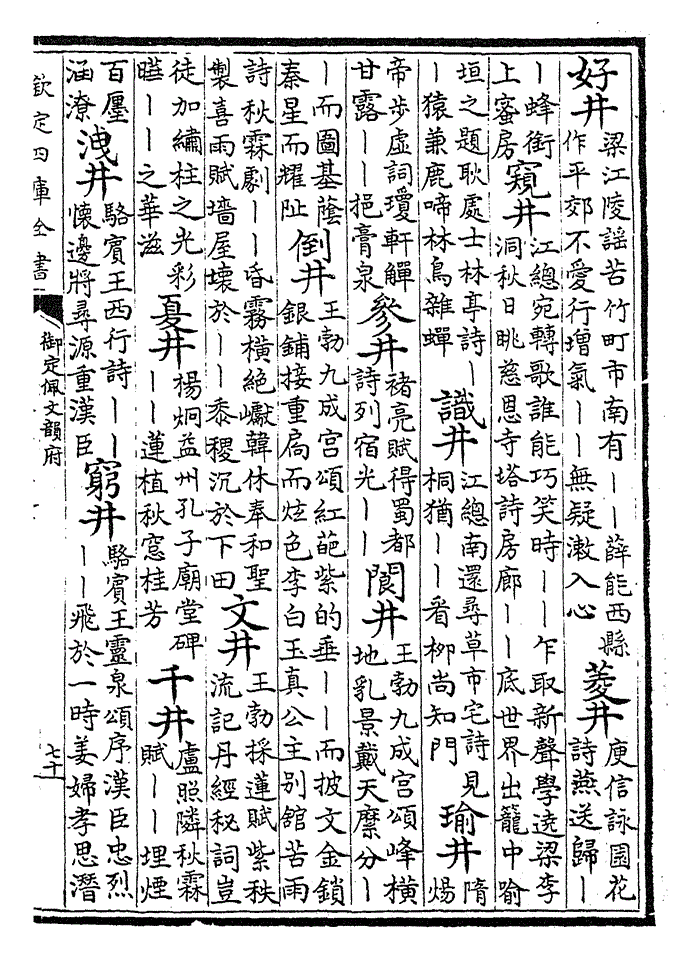 好井梁江陵謡苦竹町市南有——薛能西縣作平郊不愛行增氣——無疑漱入心菱井庾信詠園花詩燕送歸—
—蜂銜上蜜房窺井江總宛轉歌誰能巧笑時——乍取新聲學遶梁李洞秋日眺慈恩寺塔詩房廊——底世界出籠中喻
垣之題耿處士林亭詩——猿兼鹿啼林鳥雜蟬識井江總南還尋草市宅詩見桐猶——看柳尚知門瑜井隋煬
帝步虛詞瓊軒觶甘露——挹膏泉參井褚亮賦得蜀都詩列宿光——閬井王勃九成宮頌峰橫地乳景戴天縻分—
—而圖基蔭秦星而耀阯倒井王勃九成宮頌紅葩紫的垂——而披文金鎖銀鋪接重扃而炫色李白玉真公主别舘苦雨
詩秋霖劇——昏霧橫絶巘韓休奉和聖製喜雨賦墻屋壞於——黍稷沉於下田文井王勃採蓮賦紫秩流記丹經秘詞豈
徒加繡柱之光彩曖——之華滋夏井楊炯益州孔子廟堂碑——蓮植秋窓桂芳千井盧照隣秋霖賦——埋煙
百廛涵潦洩井駱賓王西行詩——懷邊將尋源重漢臣窮井駱賓王靈泉頌序漢臣忠烈——飛於一時姜婦孝思潛
欽定四庫全書
御定佩文韻府
七十